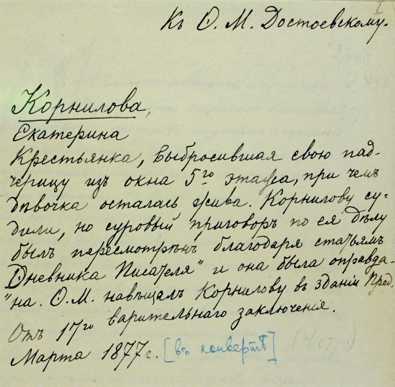 Къ Ѳ. М. Достоевскому.
Корнилова,
Екатерина
Крестьянка, выбросившая свою пад-
черицу изъ окна 5го этажа, при чемъ
дѣвочка осталась жива. Корнилову су-
дили, но суровый приговоръ по ея дѣлу
былъ пересмотрѣнъ благодаря статьямъ
„Дневника Писателя" и она была оправда-
на. Ѳ. М. навѣщалъ Корнилову въ зданіи Пред.
варительнаго заключенія.
Отъ 17го
Марта 1877 г. [въ конвертѣ]